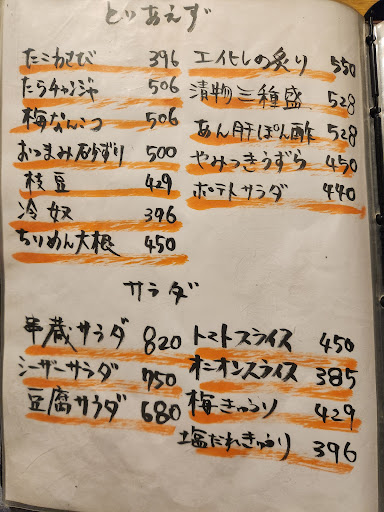 とりあえず
たこわさび 396
たらチャンジャ 506
梅なんこつ 506
おつまみ砂ずり 500
枝豆 429
冷奴 396
ちりめん大根 450
エイヒレの炙り 550
漬物三種盛 528
あん肝ぽん酢 528
やみつきうずら 450
ポテトサラダ 440
サラダ
串蔵サラダ 820
シーザーサラダ 750
豆腐サラダ 680
トマトスライス 450
オニオンスライス 385
梅きゅうり 429
塩だれきゅうり 396